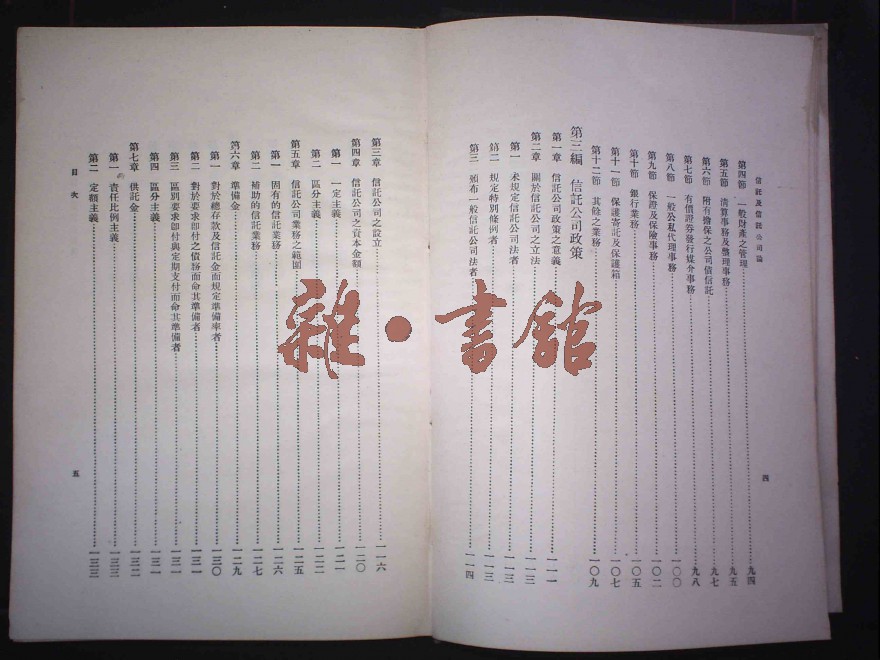 信託及信託公司論
四
第四節 一般財產之管理 九四
第五節 清算事務及整理事務 九五
第六節 附有擔保之公司債信託 九七
第七節 有價證券發行媒介事務 九八
第八節 一般公私代理事務 一〇〇
第九節 保證及保險事務 一〇二
第十節 銀行業務 一〇五
第十一節 保護寄託及保護箱 一〇七
第十二節 其餘之業務 一〇九
第三編 信託公司政策
第一章 信託公司政策之意義 一一一
第二章 關於信託公司之立法 一一三
第一 未規定信託公司法者 一一三
第二 規定特別條例者 一一三
第三 頒布一般信託公司法者 一一四
第三章 信託公司之設立 一一六
第四章 信託公司之資本金額 一二〇
第一 一定主義 一二一
第二 區分主義 一二二
第五章 信託公司業務之範圍 一二五
第一 固有的信託業務 一二六
第二 補助的信託業務 一二七
第六章 準備金 一二九
第一 對於總存款及信託金而規定準備率者 一三〇
第二 對於要求即付之債務而命其準備者 一三一
第三 區別要求即付與定期支付而命其準備者 一三一
第四 區分主義 一三一
第七章 供託金 一三二
第一 責任比例主義 一三三
第二 定額主義 一三三
目次
五
雜·書館